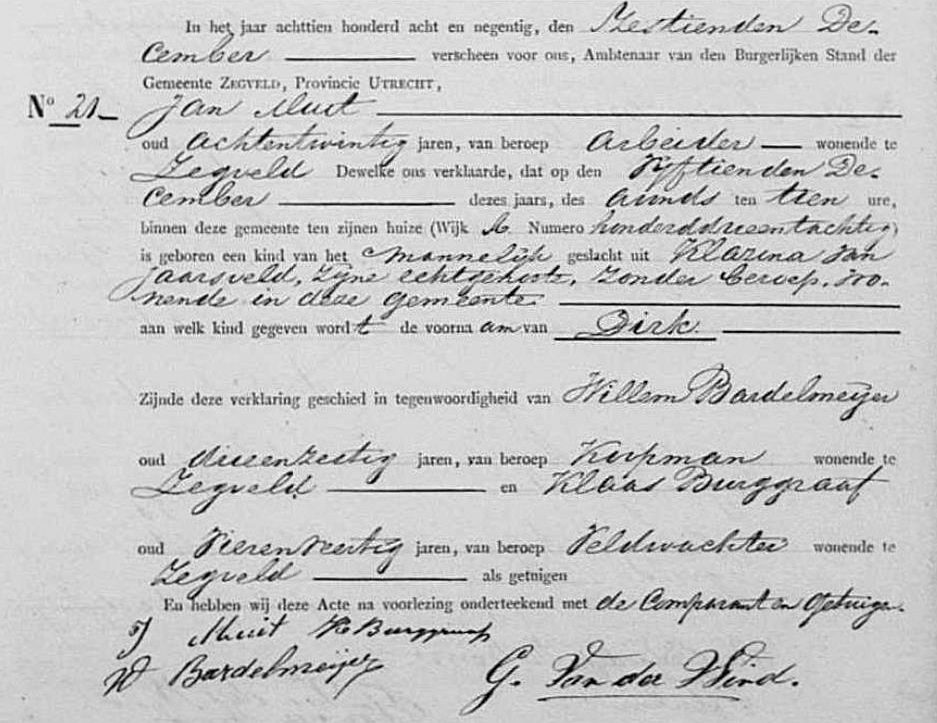 In het jaar achttien honderd acht en negentig, den Zestienden De-
cember verscheen voor ons, Ambtenaar van den Burgerlijken Stand der
Gemeente ZEGVELD, Provincie UTRECHT,
No 21 Jan Muit
oud achtentwintig jaren, van beroep Arbeider wonende te
Zegveld Dewelke ons verklaarde, dat op den Vijftienden De-
cember dezes jaars, des avonds ten tien ure,
binnen deze gemeente ten zijnen huize (Wijk A Numero honderddrieentachtig)
is geboren een kind van het Mannelijk geslacht uit Klazina van
Jaarsveld, Zijne echtgenoote, zonder beroep, wo-
nende in deze gemeente.
aan welk kind gegeven wordt de voornaam van Dirk.
Zijnde deze verklaring geschied in tegenwoordigheid van Willem Bardelmeijer
oud drieenzestig jaren, van beroep Koopman wonende te
Zegveld en Klaas Burggraaf
oud Vierenveertig jaren, van beroep Veldwachter wonende te
Zegveld als getuigen
En hebben wij deze Acte na voorlezing onderteekend met de Comparant en Getuigen.
J Muit K Burggraaf
W Bardelmeijer G. Van der Wind.